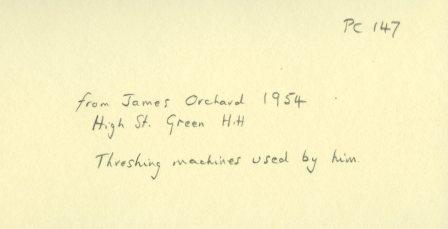 PC 147
from James Orchard 1954
High St. Green Hill
Threshing machines used by him